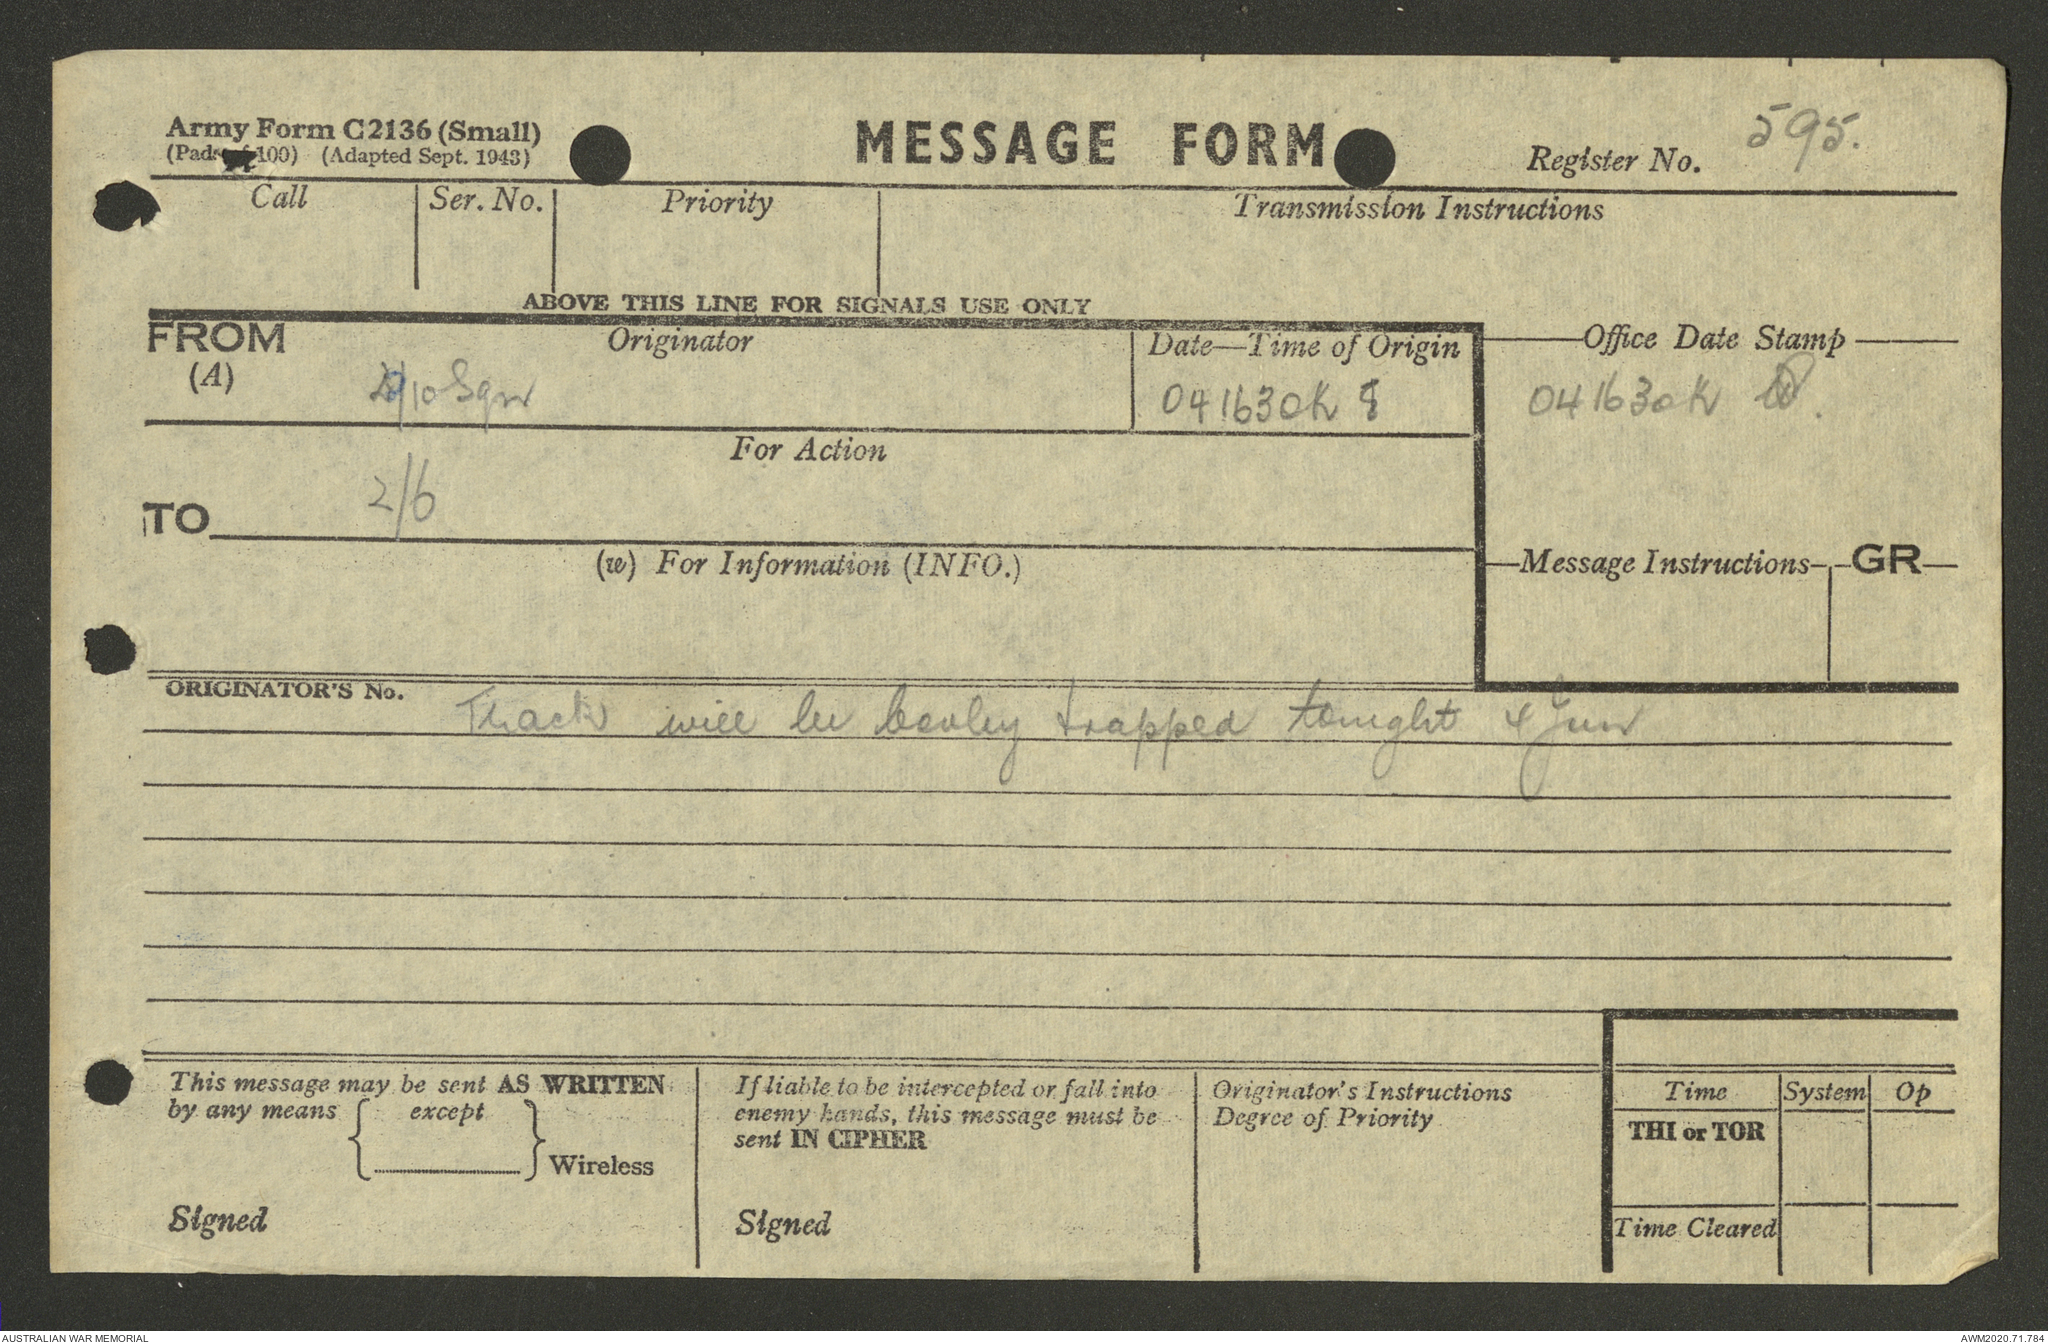 Army Form C2136 (Small)
(Pads of 100) (Adapted Sept. 1943)
MESSAGE FORM
Register No. 595.
Call
Ser. No.
Priority
Transmission Instructions
ABOVE THIS LINE FOR SIGNALS USE ONLY
FROM
(A)
Originator
2/10 Sqn
Date—Time of Origin
041630K
Office Date Stamp
041630K
For Action
TO
2/6
(w) For Information (INFO.)
Message Instructions
GR
ORIGINATOR'S No.
Track will be booby trapped tonight 4 Jun
This message may be sent AS WRITTEN
by any means { except } Wireless
Signed
If liable to be intercepted or fall into
enemy hands, this message must be
sent IN CIPHER
Signed
Originator's Instructions
Degree of Priority
Time
System
Op
THI or TOR
Time Cleared
AUSTRALIAN WAR MEMORIAL
AWM2020.71.784